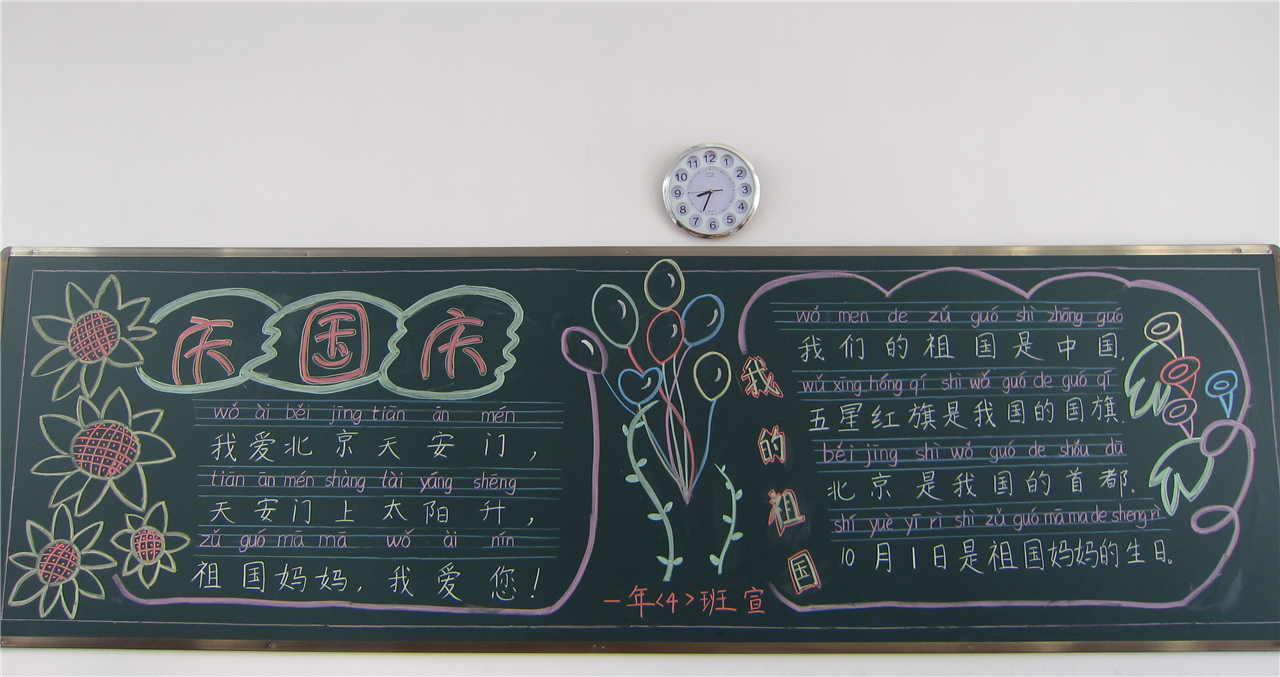 12
1
2
3
4
5
6
7
8
9
10
11
庆 国 庆
wǒ ài běi jīng tiān ān mén
我爱北京天安门，
tiān ān mén shàng tài yáng shēng
天安门上太阳升，
zǔ guó mā mā wǒ ài nín
祖国妈妈，我爱您！
我的祖国
wǒ men de zǔ guó shì zhōng guó
我们的祖国是中国.
wǔ xīng hóng qí shì wǒ guó de guó qí
五星红旗是我国的国旗.
běi jīng shì wǒ guó de shǒu dū
北京是我国的首都.
shí yuè yī rì shì zǔ guó mā ma de shēng rì
10月1日是祖国妈妈的生日。
一年<4>班宣